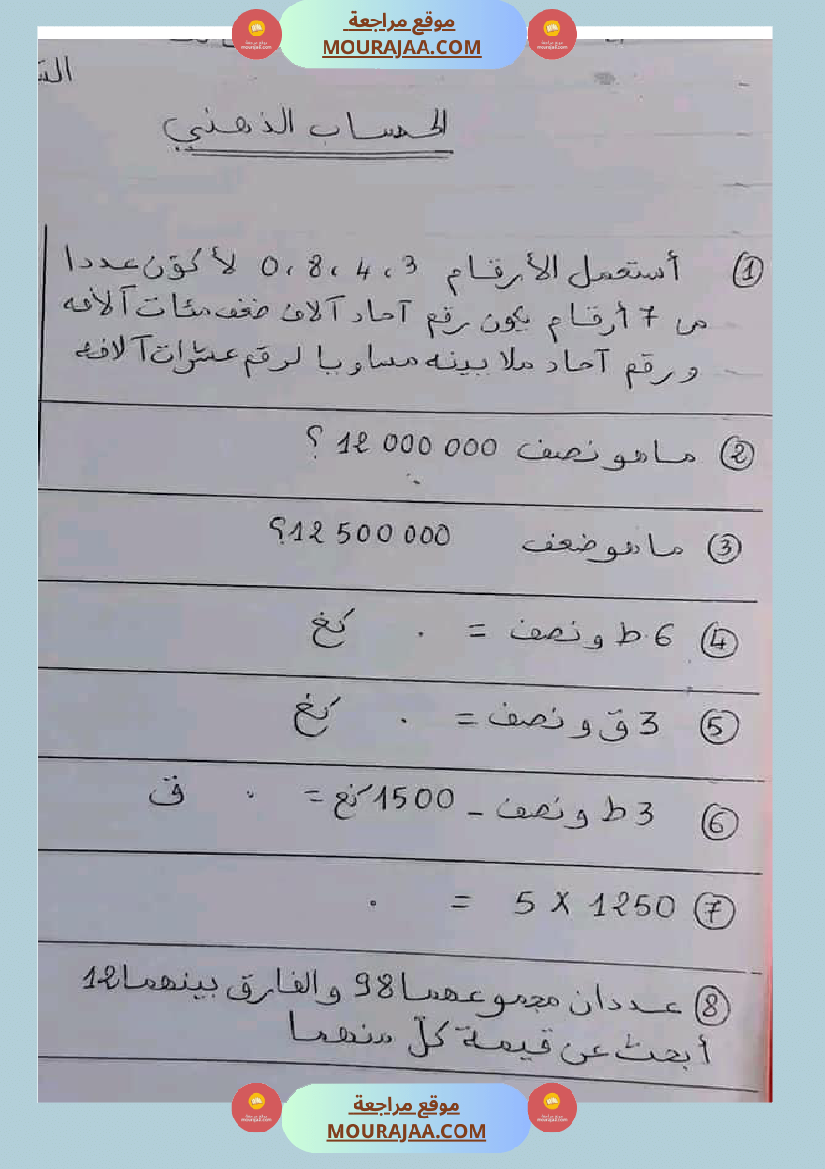 موقع مراجعة
MOURAJAA.COM
الحساب الذهني
① أستعمل الأرقام 3، 4، 8، 0 لأكوّن عددا
من 7 أرقام يكون رقم آحاد آلافه ضعف مئات آلافه
و رقم آحاد ملايينه مساويا لرقم عشرات آلافه
② ما هو نصف 12 000 000 ؟
③ ما هو ضعف 12 500 000؟
④ 6 ط و نصف = . كغ
⑤ 3 ق و نصف = . كغ
⑥ 3 ط و نصف - 1500 كغ = . ق
⑦ 5 X 1250 = .
⑧ عددان مجموعهما 98 والفارق بينهما 12
أبحث عن قيمة كلّ منهما
موقع مراجعة
MOURAJAA.COM